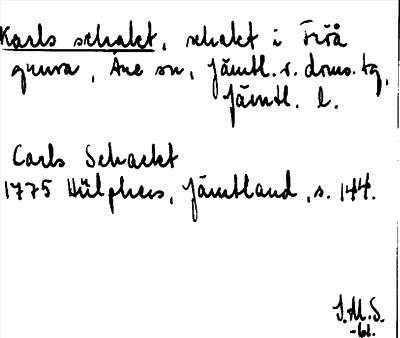 Karls schakt, schakt i Fröå
gruva, Åre sn, Jämtl. v. doms. tg,
Jämtl. l.
Carls Schackt
1775 Hülphers, Jämtland, s. 144.
S.M.S.
-61.